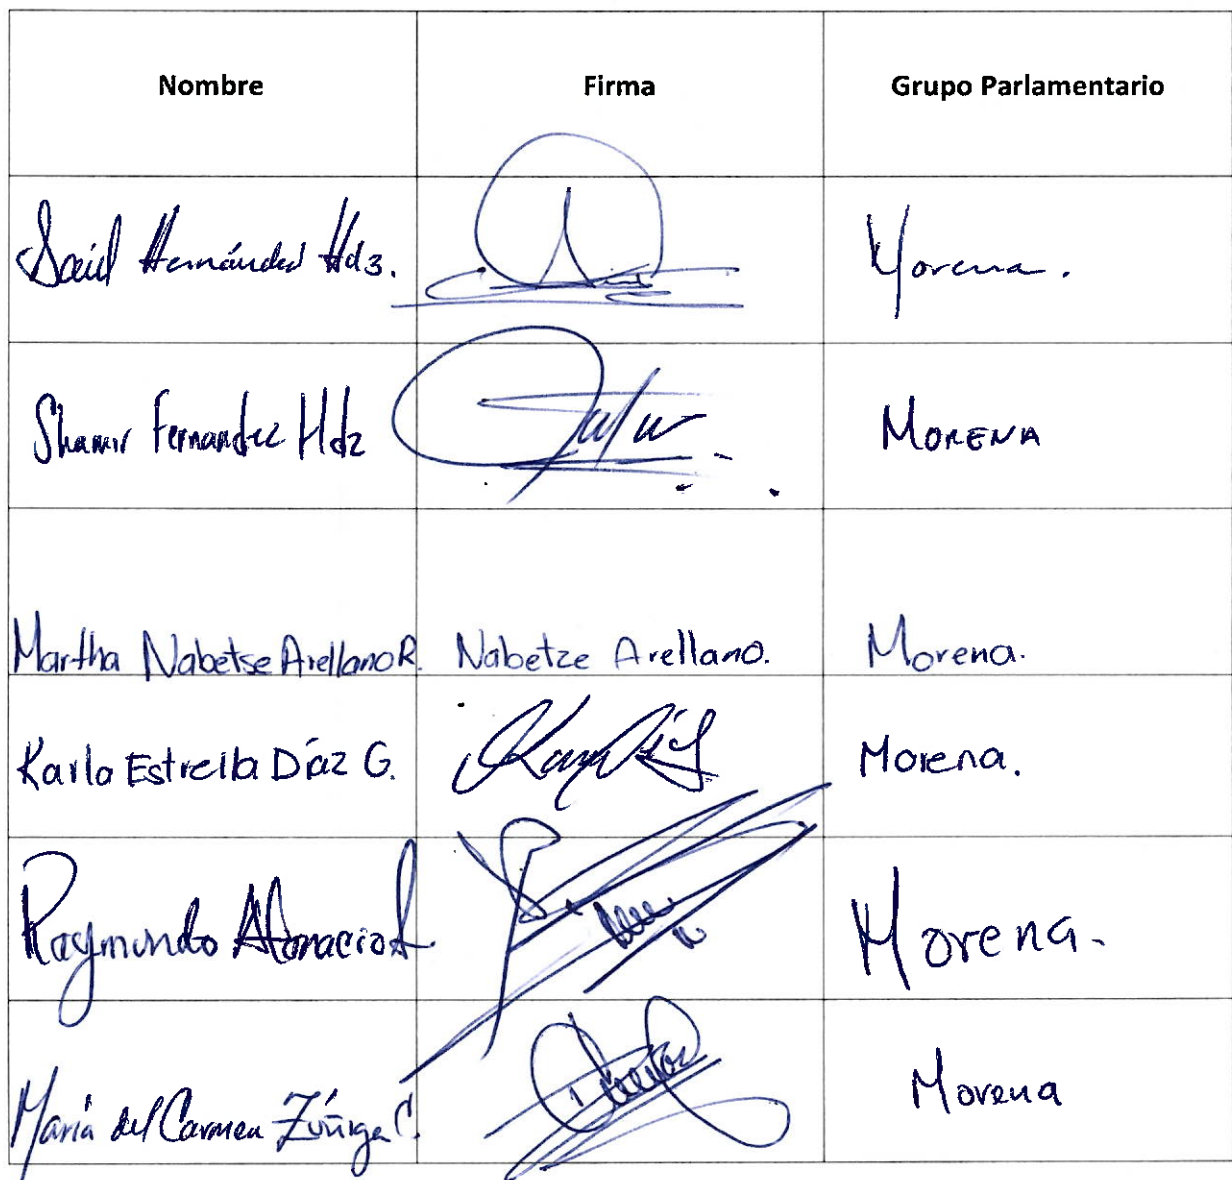 Nombre Firma Grupo Parlamentario
Saúl Hernández Hdz. Morena.
Shamir Fernandez Hdz MORENA
Martha Nabetse Arellano R. Nabetze Arellano. Morena.
Karla Estrella Díaz G. Morena.
Raymundo Morena.
María del Carmen Zúñiga C. Morena